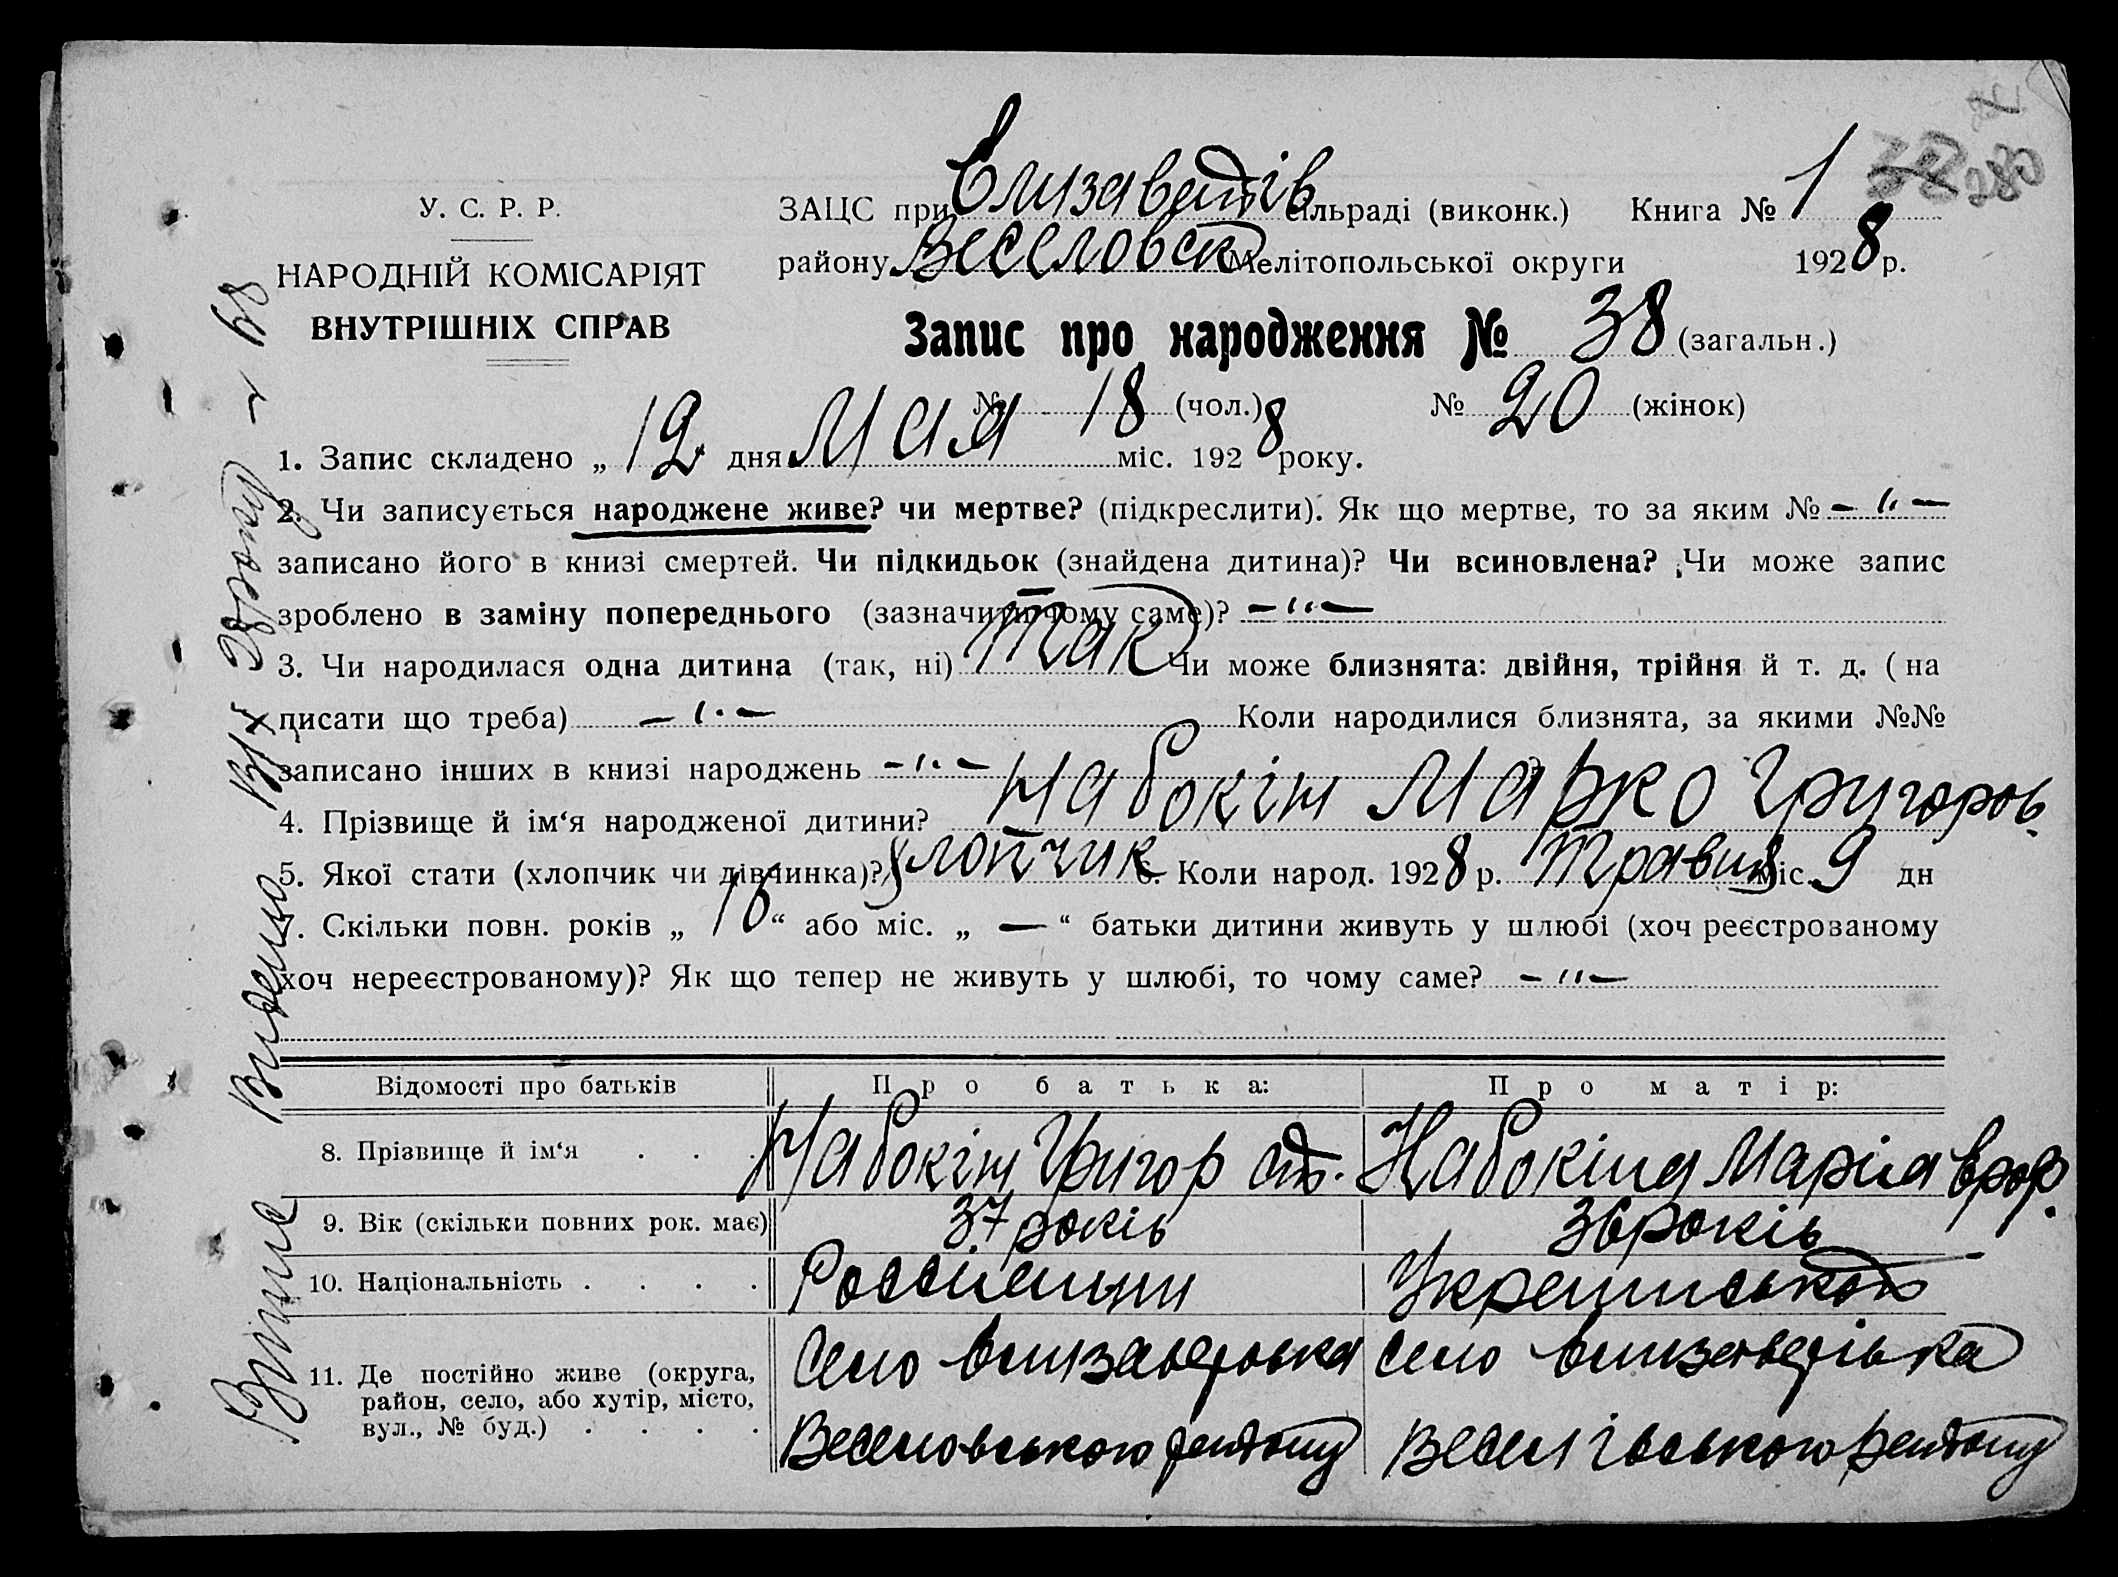 У. С. Р. Р.
НАРОДНІЙ КОМІСАРІЯТ
ВНУТРІШНІХ СПРАВ
ЗАЦС при Єлизаветів сільраді (виконк.) Книга № 1
280
району Веселовск Мелітопольської округи 1928 р.
Запис про народження № 38 (загальн.)
№ 18 (чол.) № 20 (жінок)
1. Запис складено „ 12 дня Мая міс. 1928 року.
2. Чи записується народжене живе? чи мертве? (підкреслити). Як що мертве, то за яким № – " –
записано його в книзі смертей. Чи підкидьок (знайдена дитина)? Чи всиновлена? Чи може запис
зроблено в заміну попереднього (зазначити чому саме)? – " –
3. Чи народилася одна дитина (так, ні) Так Чи може близнята: двійня, трійня й т. д. (на
писати що треба) – " – Коли народилися близнята, за якими №№
записано інших в книзі народжень – " –
4. Прізвище й ім‘я народженої дитини? Набокін Марко Григоров.
5. Якої стати (хлопчик чи дівчинка)? Хлопчик 6. Коли народ. 1928 р. Травня міс. 9 дн
7. Скільки повн. років „ 16 “ або міс. „ — “ батьки дитини живуть у шлюбі (хоч реєстрованому
хоч нереєстрованому)? Як що тепер не живуть у шлюбі, то чому саме? – " –
Відомості про батьків Про батька: Про матір:
8. Прізвище й ім‘я . . . Набокін Григор Набокіна Марія
9. Вік (скільки повних рок. має) 37 років 36 років
10. Національність . . . .
11. Де постійно живе (округа, район, село, або хутір, місто, вул., № буд.) . . . .
Село Єлизаветовка Село Єлизаветівка
Веселовського району Веселівського району